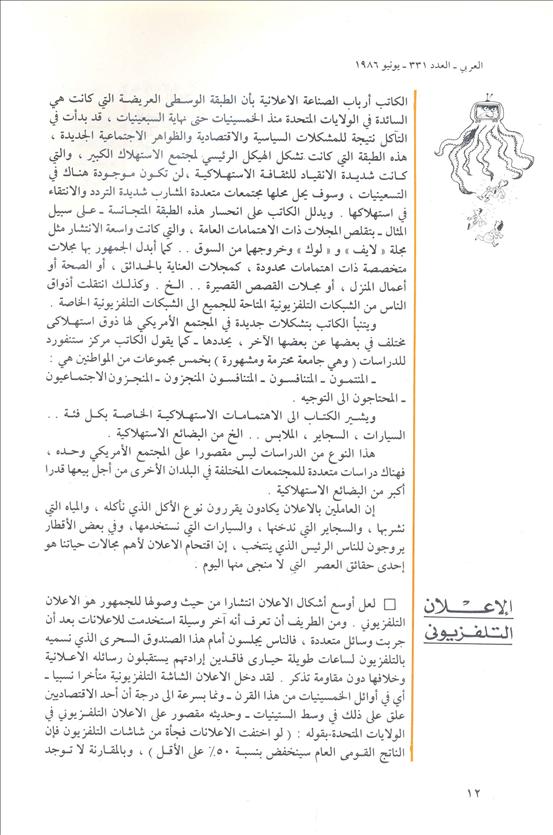 العربي - العدد ٣٣١ - يونيو ١٩٨٦
الكاتب أرباب الصناعة الاعلانية بأن الطبقة الوسطى العريضة التي كانت هي
السائدة في الولايات المتحدة منذ الخمسينيات حتى نهاية السبعينيات ، قد بدأت في
التآكل نتيجة للمشكلات السياسية والاقتصادية والظواهر الاجتماعية الجديدة ،
هذه الطبقة التي كانت تشكل الهيكل الرئيسي لمجتمع الاستهلاك الكبير ، والتي
كانت شديدة الانقياد للثقافة الاستهلاكية ، لن تكون موجودة هناك في
التسعينيات ، وسوف يحل محلها مجتمعات متعددة المشارب شديدة التردد والانتقاء
في استهلاكها . ويدلل الكاتب على انحسار هذه الطبقة المتجانسة - على سبيل
المثال - بتقلص المجلات ذات الاهتمامات العامة ، والتي كانت واسعة الانتشار مثل
مجلة « لايف » و « لوك » وخروجهما من السوق . . كما أبدل الجمهور بها مجلات
متخصصة ذات اهتمامات محدودة ، كمجلات العناية بالحدائق ، أو الصحة أو
أعمال المنزل ، أو مجلات القصص القصيرة . . الخ . وكذلك انتقلت أذواق
الناس من الشبكات التلفزيونية المتاحة للجميع الى الشبكات التلفزيونية الخاصة .
ويتنبأ الكاتب بتشكلات جديدة في المجتمع الأمريكي لها ذوق استهلاكى
مختلف في بعضها عن بعضها الآخر ، يحددها - كما يقول الكاتب مركز ستنفورد
للدراسات ( وهي جامعة محترمة ومشهورة ) بخمس مجموعات من المواطنين هي :
- المنتمون - المتنافسون - المتنافسون المنجزون - المنجزون الاجتماعيون
- المحتاجون الى التوجيه .
ويشير الكتاب الى الاهتمامات الاستهلاكية الخاصة بكل فئة . .
السيارات ، السجاير ، الملابس . . الخ من البضائع الاستهلاكية .
هذا النوع من الدراسات ليس مقصورا على المجتمع الأمريكي وحده ،
فهناك دراسات متعددة للمجتمعات المختلفة في البلدان الأخرى من أجل بيعها قدرا
أكبر من البضائع الاستهلاكية .
إن العاملين بالاعلان يكادون يقررون نوع الأكل الذي نأكله ، والمياه التي
نشربها ، والسجاير التي ندخنها ، والسيارات التي نستخدمها، وفي بعض الأقطار
يروجون للناس الرئيس الذي ينتخب ، إن اقتحام الاعلان لأهم مجالات حياتنا هو
إحدى حقائق العصر التي لا منجى منها اليوم .
الإعلان
التلفزيوني
□ لعل أوسع أشكال الاعلان انتشارا من حيث وصولها للجمهور هو الاعلان
التلفزيوني . ومن الطريف أن تعرف أنه آخر وسيلة استخدمت للاعلانات بعد أن
جربت وسائل متعددة ، فالناس يجلسون أمام هذا الصندوق السحرى الذي نسميه
بالتلفزيون لساعات طويلة حيارى فاقدين إرادتهم يستقبلون رسائله الاعلانية
وخلافها دون مقاومة تذكر . لقد دخل الاعلان الشاشة التلفزيونية متأخرا نسبيا -
أي في أوائل الخمسينيات من هذا القرن - ونما بسرعة الى درجة أن أحد الاقتصاديين
علق على ذلك في وسط الستينيات - وحديثه مقصور على الاعلان التلفزيوني في
الولايات المتحدة-بقوله : ( لو اختفت الاعلانات فجأة من شاشات التلفزيون فإن
الناتج القومى العام سينخفض بنسبة ٥٠٪ على الأقل ) ، وبالمقارنة لا توجد
١٢